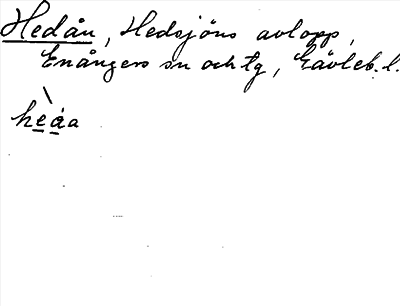 Hedån, Hedsjöns avlopp,
Enångers sn och tg, Gävleb. l.
heåa